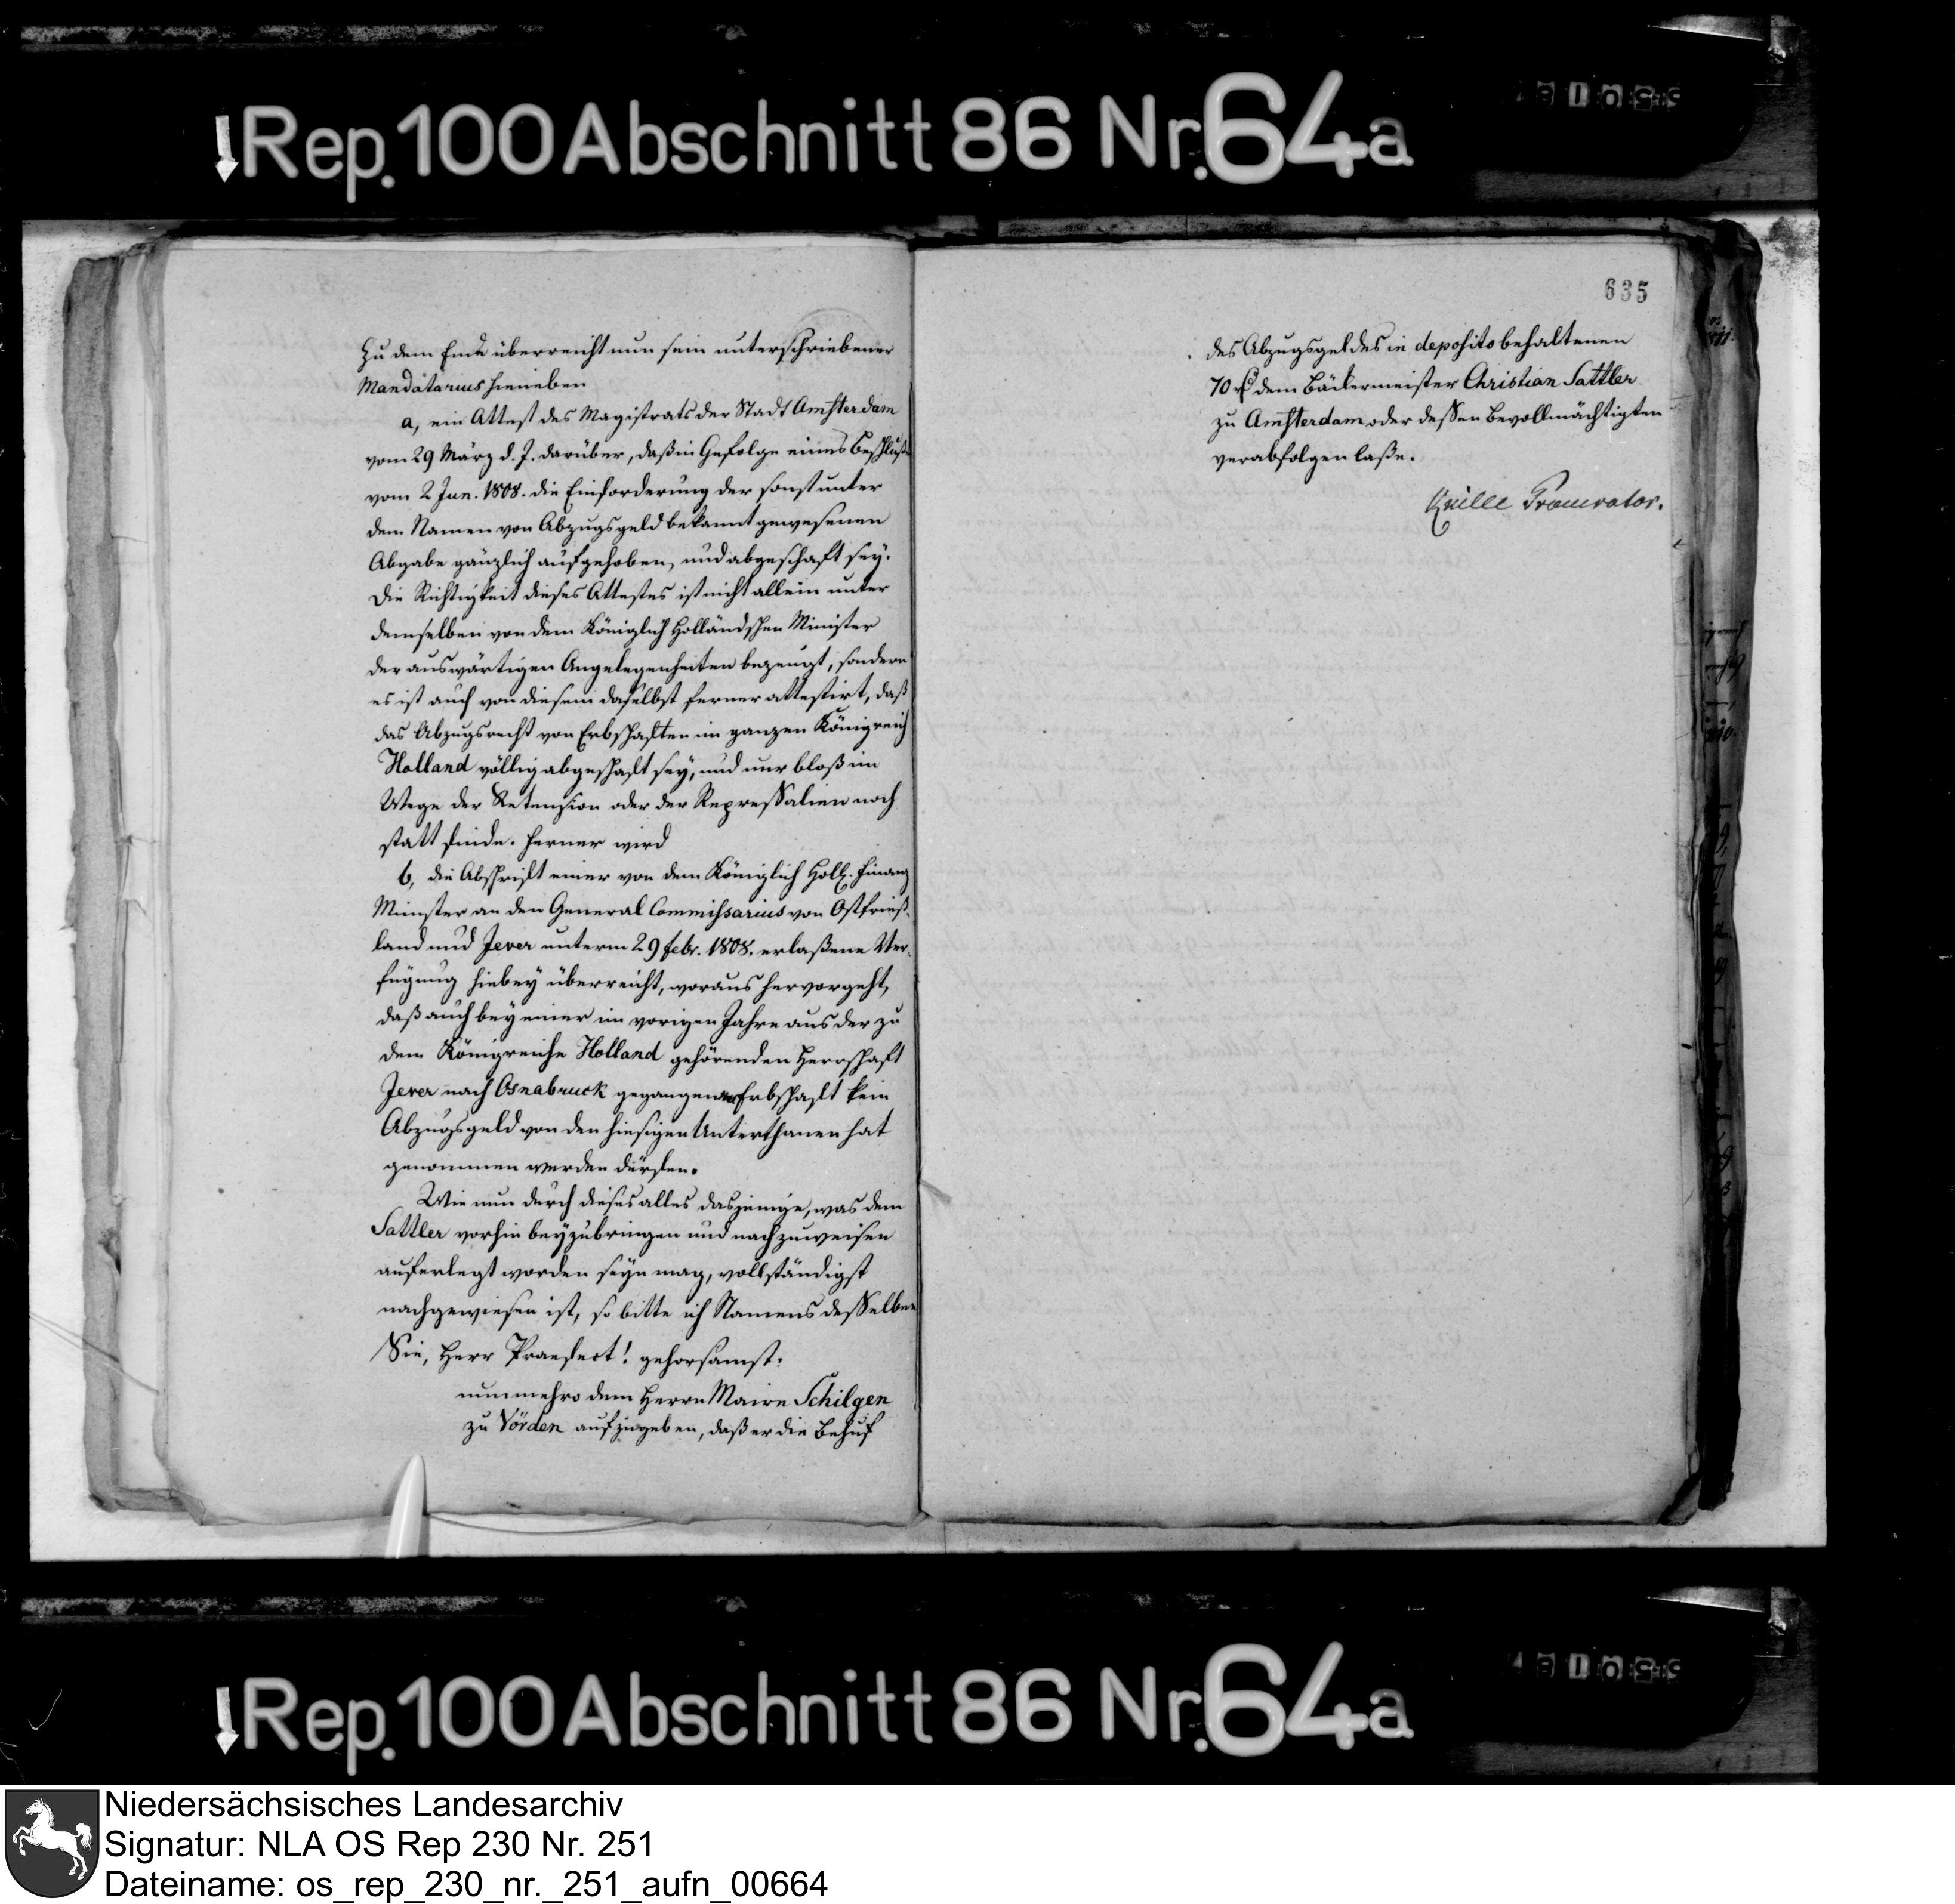 ↓Rep.100 Abschnitt 86 Nr.64a
635
Zu dem Ende überreicht nun sein unterschriebener
Mandatarius hieneben
a, ein Attest des Magistrats der Stadt Amsterdam
vom 29 März d. J. darüber, daß in Gefolge eines Beschlußes
vom 2 Jun. 1808. die Einforderung der sonst unter
dem Namen von Abzugsgeld bekannt gewesenen
Abgabe gänzlich aufgehoben, und abgeschaft sey.
Die Richtigkeit dieses Attestes ist nicht allein unter
demselben von dem Königlich Holländschen Minister
der auswärtigen Angelegenheiten bezeugt, sondern
es ist auch von diesem daselbst ferner attestirt, daß
das Abzugsrecht von Erbschaften im ganzen Königreich
Holland völlig abgeschaft sey, und nur bloß im
Wege der Retension oder der Repressalien noch
statt finde. Ferner wird
b, die Abschrift einer von dem Königlich Holl. Finanz
Minster an den General Commissarius von Ostfrieß-
land und Jever unterm 29 febr. 1808. erlaßene Ver-
fügung hiebey überreicht, woraus hervorgeht,
daß auch bey einer im vorigen Jahre aus der zu
dem Königreiche Holland gehörenden Herrschaft
Jever nach Osnabruck gegangenen Erbschaft kein
Abzugsgeld von den hiesigen Unterthanen hat
genommen werden dürfen.
Wie nun durch dieses alles dasjenige, was dem
Sattler vorhin beyzubringen und nachzuweisen
auferlegt worden seyn mag, vollständigst
nachgewiesen ist, so bitte ich Namens desselben
Sie, Herr Praefect! gehorsamst:
nunmehro dem Herrn Maire Schilgen
zu Vörden aufzugeben, daß er die Behuf
des Abzugsgeldes in deposito behaltenen
70 rß dem Bäckermeister Christian Sattler
zu Amsterdam oder dessen Bevollmächtigten
verabfolgen laße.
Krille Procurator.
↓Rep.100 Abschnitt 86 Nr.64a
Niedersächsisches Landesarchiv
Signatur: NLA OS Rep 230 Nr. 251
Dateiname: os_rep_230_nr._251_aufn_00664